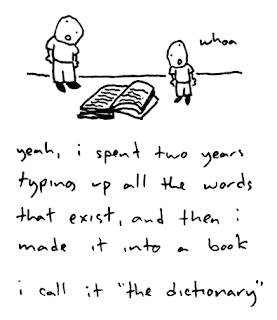 whoa
yeah, i spent two years
typing up all the words
that exist, and then i
made it into a book
i call it "the dictionary"